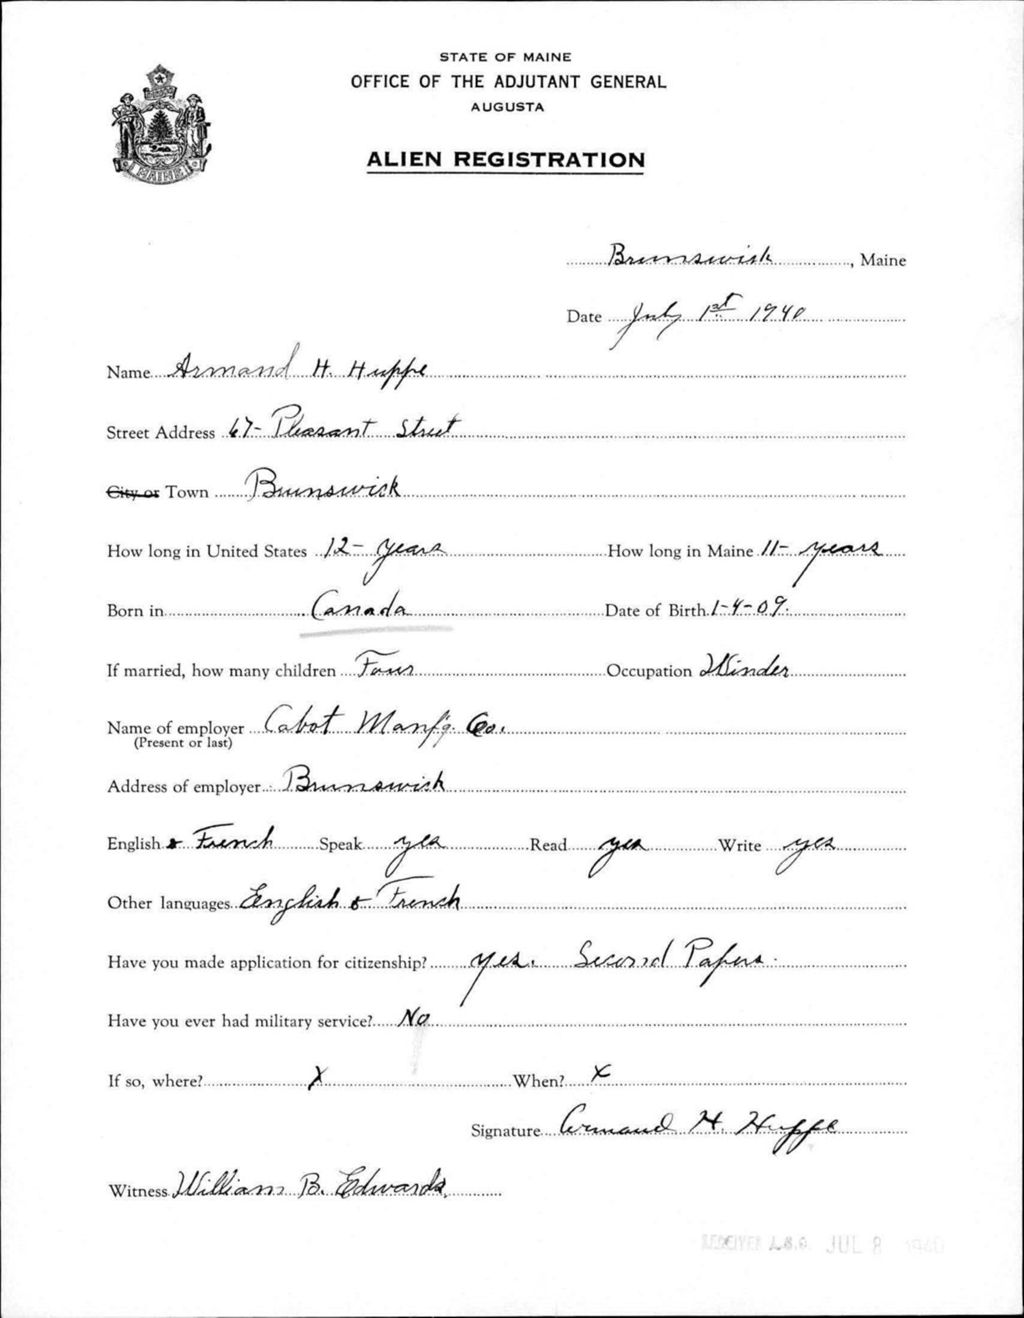 STATE OF MAINE
OFFICE OF THE ADJUTANT GENERAL
AUGUSTA
ALIEN REGISTRATION
MAINE
Brunswick, Maine
Date July 1st 1940
Name Armand H. Huppe
Street Address 67- Pleasant Street
City or Town Brunswick
How long in United States 12- years How long in Maine 11- years
Born in Canada Date of Birth 1-4-09.
If married, how many children Four Occupation Winder
Name of employer Cabot Manf'g. Co.
(Present or last)
Address of employer Brunswick
English & French Speak yes Read yes Write yes
Other languages English & French
Have you made application for citizenship? yes. Second Papers.
Have you ever had military service? No
If so, where? X When? X
Signature Armand H. Huppe
Witness William B. Edwards
RECEIVED A.G.O. JUL 8 1940